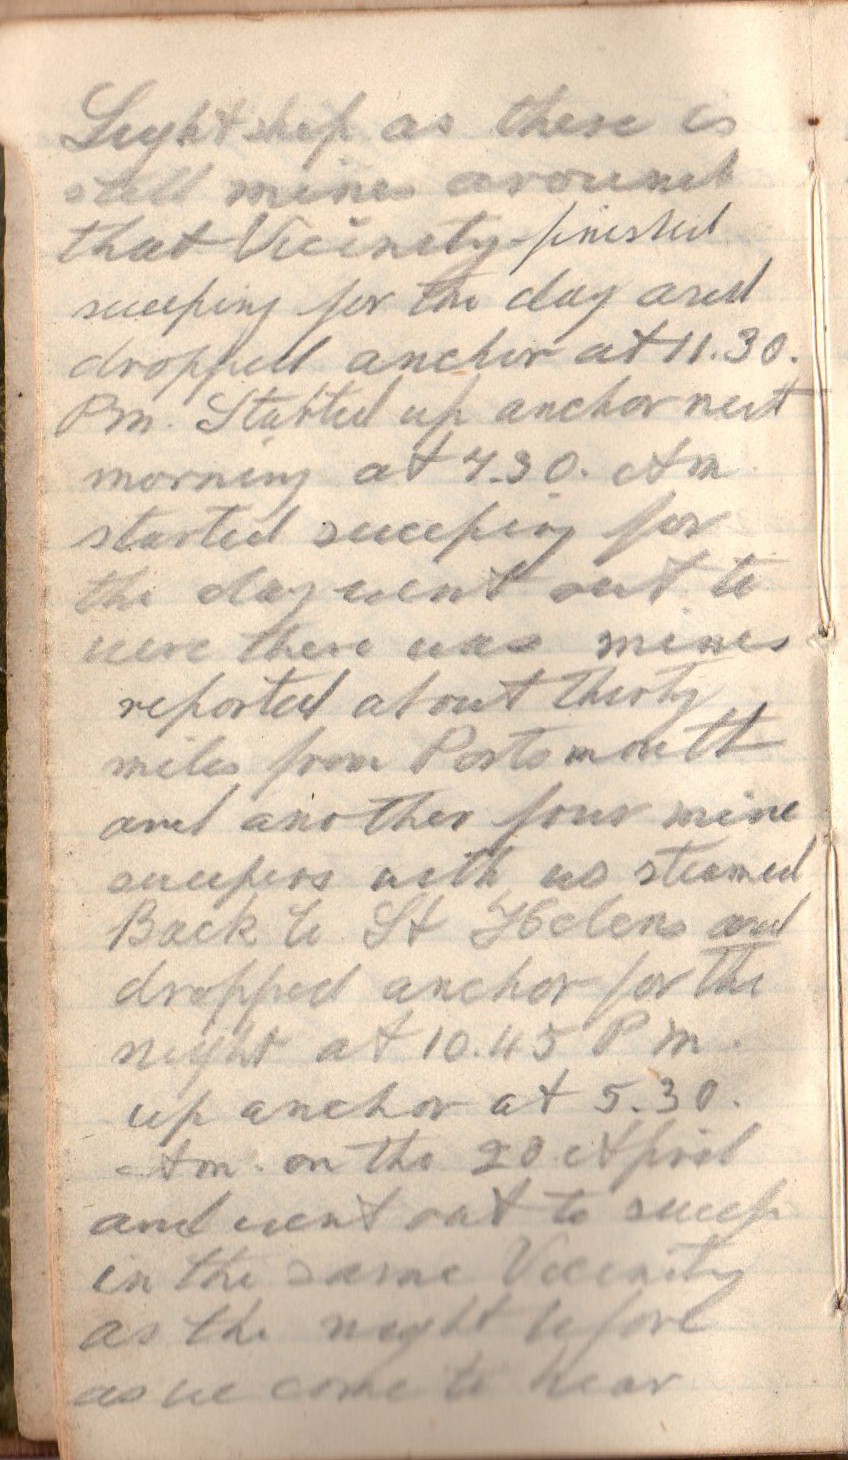 Lightship as there is
still mines around
that Vicinity finished
sweeping for the day and
dropped anchor at 11.30.
Pm. Started up anchor next
morning at 7.30. Am
started sweeping for
the day went out to
were there was mines
reported about thirty
miles from Portsmouth
and another four mine
sweepers with us steamed
Back to St Helens and
dropped anchor for the
night at 10.45 P m.
up anchor at 5.30.
Am. on the 20 April
and went out to sweep
in the same Vicinity
as the night before
as we come to hear